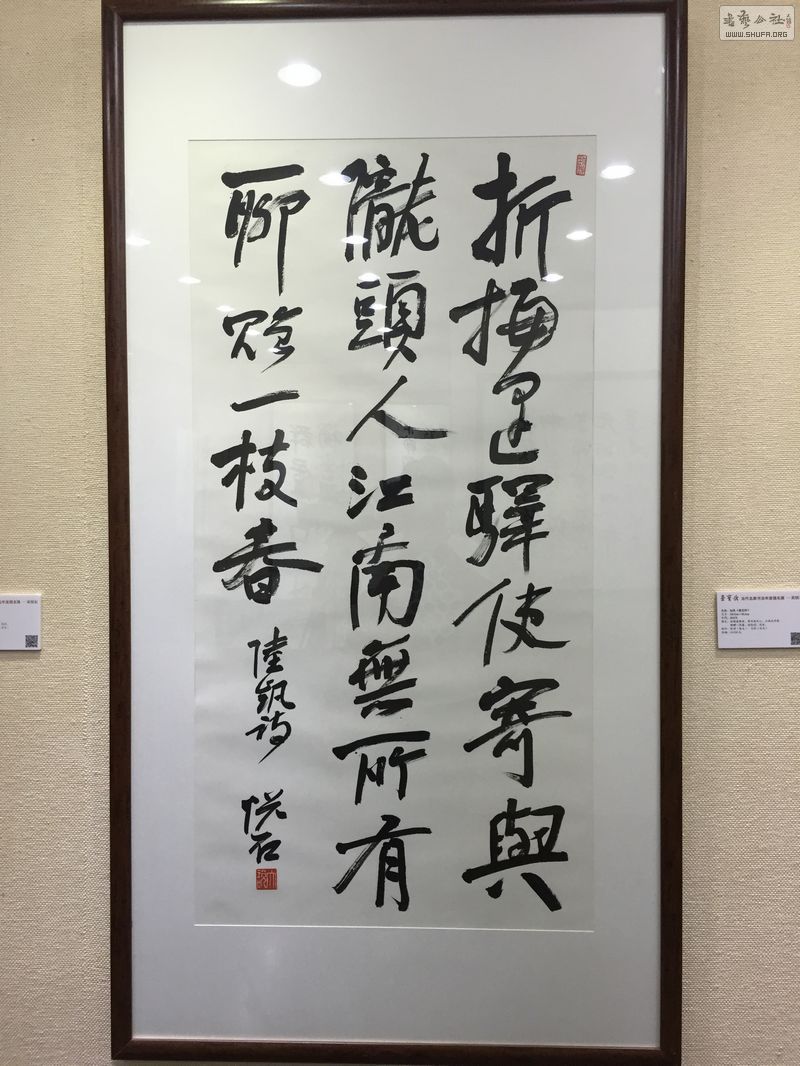 折梅逢驛使寄與
隴頭人江南無所有
聊贈一枝春
陸凱詩
悅石
書藝公社
WWW.SHUFA.ORG